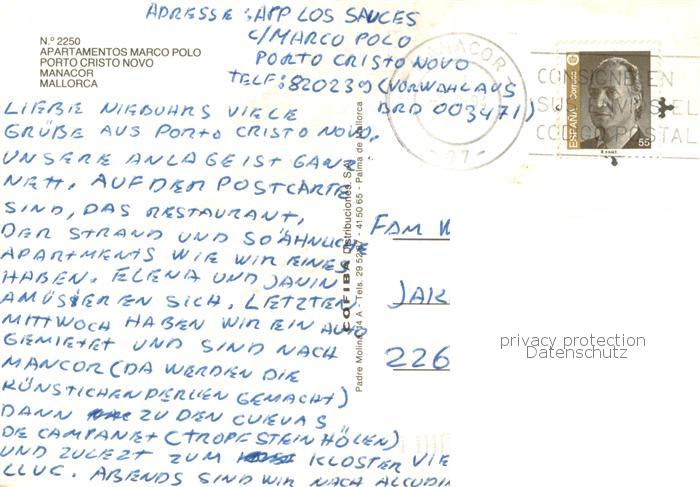 ADRESSE: APP LOS SAUCES
C/MARCO POLO
PORTO CRISTO NOVO
TELF: 820239 (VORWAHL AUS
BRD 003471)
N.º 2250
APARTAMENTOS MARCO POLO
PORTO CRISTO NOVO
MANACOR
MALLORCA
MANACOR
27
CONSIGNE EN
SUS ENVIOS EL
CODIGO POSTAL
ESPAÑA Correos
55
LIEBE NIEBUHRS VIELE
GRÜßE AUS PORTO CRISTO NOVO.
UNSERE ANLAGE IST GANZ
NETT. AUF DER POSTCARTE
SIND, DAS RESTAURANT,
DER STRAND UND SO ÄHNLICHE
APARTMENTS WIE WIR EINES
HABEN. ELENA UND JAVIN
AMÜSIEREN SICH. LETZTEN
MITTWOCH HABEN WIR EIN AUTO
GEMIETET UND SIND NACH
MANCOR (DA WERDEN DIE
KÜNSTICHEN PERLEN GEMACHT)
DANN ZU DEN CUEVAS
DE CAMPANET (TROPFSTEIN HÖLEN)
UND ZULEZT ZUM KLOSTER VIE
LLUC. ABENDS SIND WIR NACH ALCUDIA
COFIBA Distribuciones, S.A.
Padre Molina, 14 A - Tels. 29 52 97 - 41 50 65 - Palma de Mallorca
FAM
JAK
226
privacy protection
Datenschutz